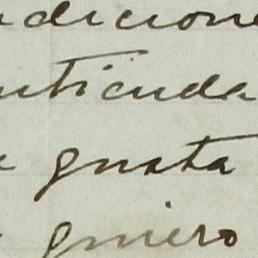 dicione
ntienda
gusta
quiero